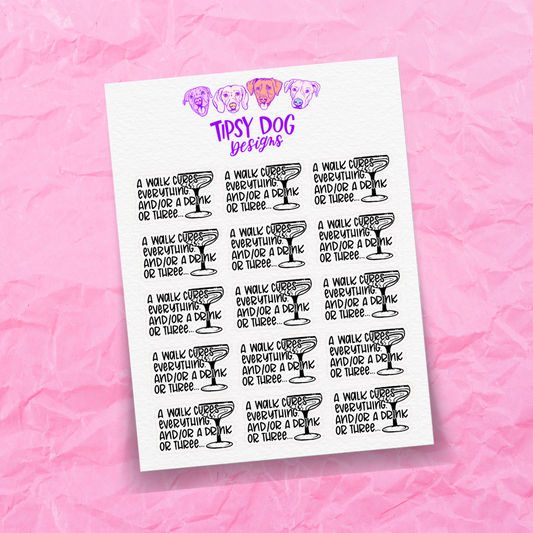 TIPSY DOG
Designs
A WALK CURES A WALK CURES A WALK CURES
EVERYTHING EVERYTHING EVERYTHING
AND/OR A DRINK AND/OR A DRINK AND/OR A DRINK
OR THREE... OR THREE... OR THREE...
A WALK CURES A WALK CURES A WALK CURES
EVERYTHING EVERYTHING EVERYTHING
AND/OR A DRINK AND/OR A DRINK AND/OR A DRINK
OR THREE... OR THREE... OR THREE...
A WALK CURES A WALK CURES A WALK CURES
EVERYTHING EVERYTHING EVERYTHING
AND/OR A DRINK AND/OR A DRINK AND/OR A DRINK
OR THREE... OR THREE... OR THREE...
A WALK CURES A WALK CURES A WALK CURES
EVERYTHING EVERYTHING EVERYTHING
AND/OR A DRINK AND/OR A DRINK AND/OR A DRINK
OR THREE... OR THREE... OR THREE...
A WALK CURES A WALK CURES A WALK CURES
EVERYTHING EVERYTHING EVERYTHING
AND/OR A DRINK AND/OR A DRINK AND/OR A DRINK
OR THREE... OR THREE... OR THREE...